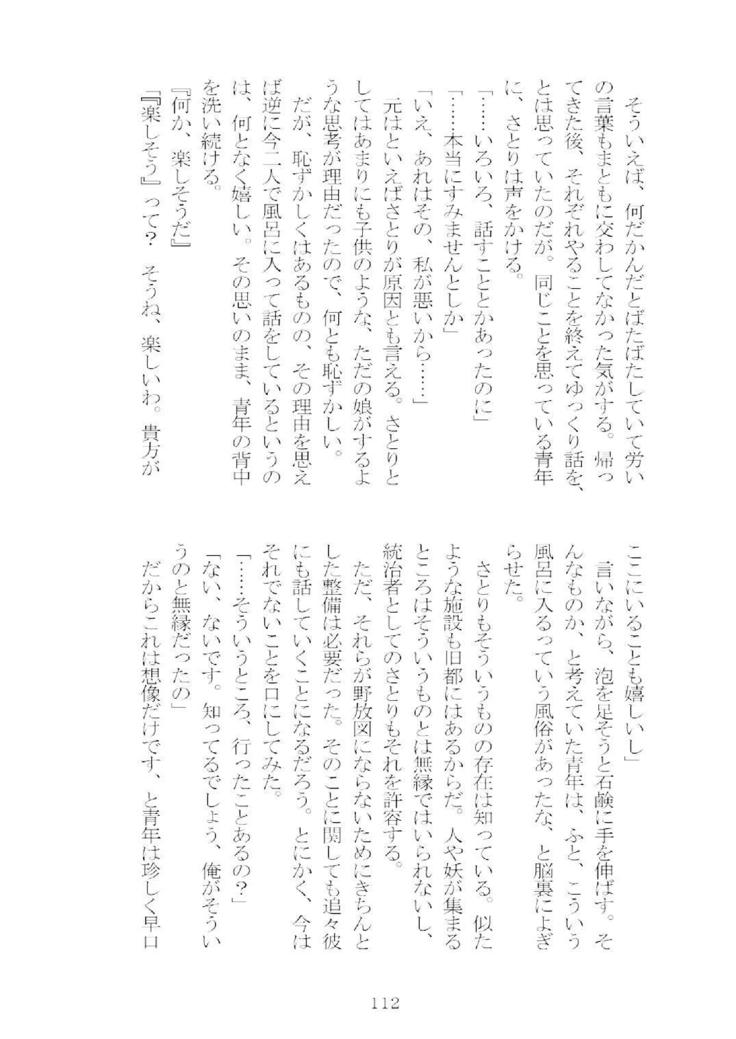 そういえば、何だかんだとばたばたしていて労い
の言葉もまともに交わしてなかった気がする。帰っ
てきた後、それぞれやることを終えてゆっくり話を、
とは思っていたのだが。同じことを思っている青年
に、さとりは声をかける。
「……いろいろ、話すこととかあったのに」
「……本当にすみませんとしか」
「いえ、あれはその、私が悪いから……」
　元はといえばさとりが原因とも言える。さとりと
してはあまりにも子供のような、ただの娘がするよ
うな思考が理由だったので、何とも恥ずかしい。
　だが、恥ずかしくはあるものの、その理由を思え
ば逆に今二人で風呂に入って話をしているというの
は、何となく嬉しい。その思いのまま、青年の背中
を洗い続ける。
『何か、楽しそうだ』
「『楽しそう』って？　そうね、楽しいわ。貴方が
ここにいることも嬉しいし」
　言いながら、泡を足そうと石鹸に手を伸ばす。そ
んなものか、と考えていた青年は、ふと、こういう
風呂に入るっていう風俗があったな、と脳裏によぎ
らせた。
　さとりもそういうものの存在は知っている。似た
ような施設も旧都にはあるからだ。人や妖が集まる
ところはそういうものとは無縁ではいられないし、
統治者としてのさとりもそれを許容する。
　ただ、それらが野放図にならないためにきちんと
した整備は必要だった。そのことに関しても追々彼
にも話していくことになるだろう。とにかく、今は
それでないことを口にしてみた。
「……そういうところ、行ったことあるの？」
「ない、ないです。知ってるでしょう、俺がそうい
うのと無縁だったの」
　だからこれは想像だけです、と青年は珍しく早口
112